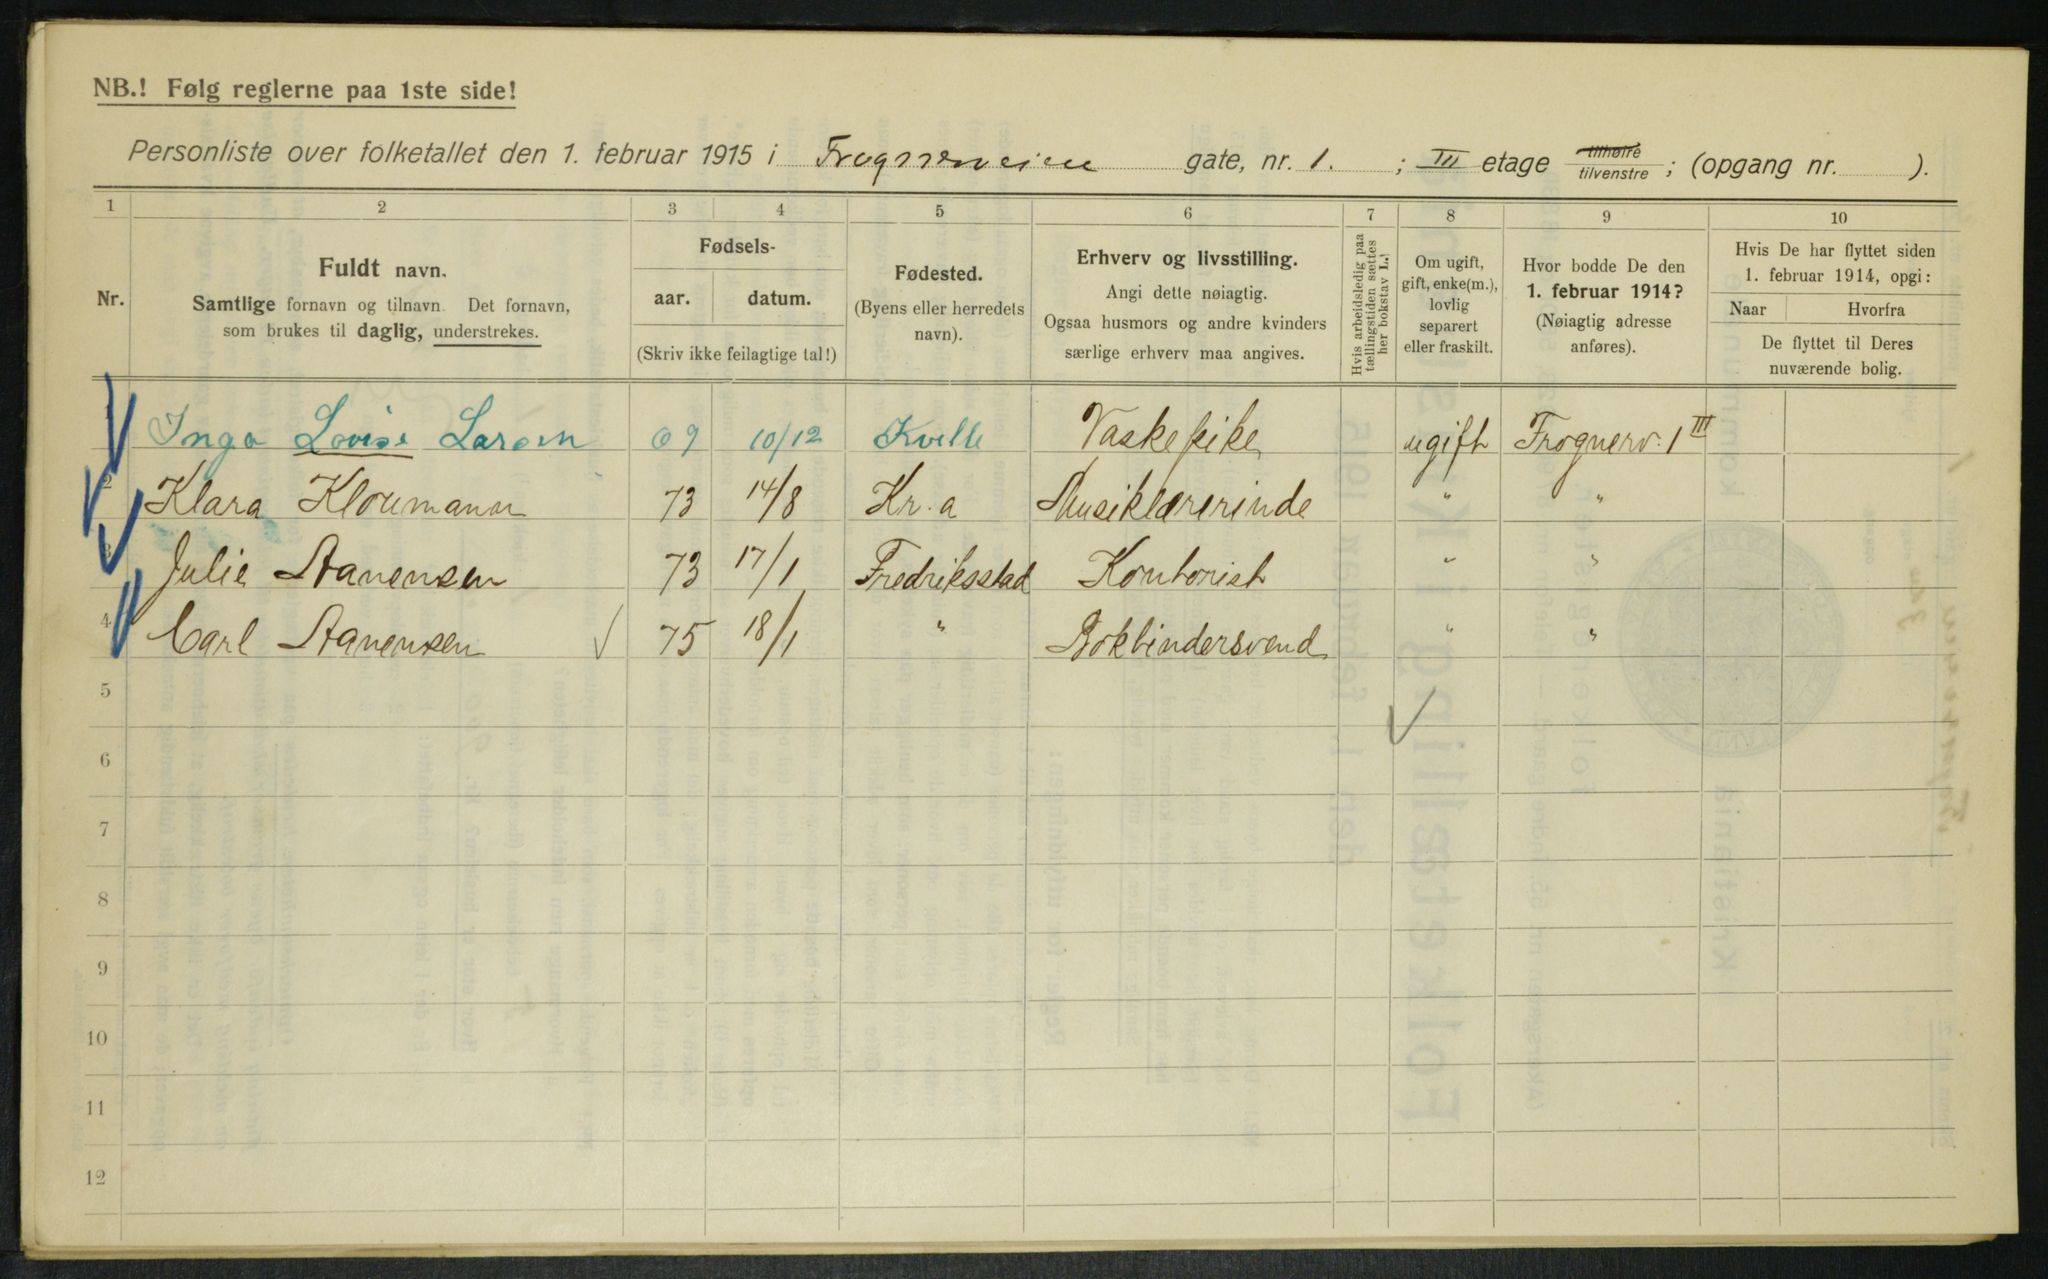 NB.! Følg reglerne paa 1ste side!
Personliste over folketallet den 1. februar 1915 i Frognerveien gate, nr. 1. ; III etage tilhøire tilvenstre ; (opgang nr. ).
1 2 3 4 5 6 7 8 9 10
Nr.
Fuldt navn.
Samtlige fornavn og tilnavn. Det fornavn,
som brukes til daglig, understrekes.
Fødsels-
aar. datum.
(Skriv ikke feilagtige tal!)
Fødested.
(Byens eller herredets
navn).
Erhverv og livsstilling.
Angi dette nøiagtig.
Ogsaa husmors og andre kvinders
særlige erhverv maa angives.
Hvis arbeidsledig paa
tællingstiden sættes
her bokstav L.!
Om ugift,
gift, enke(m.),
lovlig
separert
eller fraskilt.
Hvor bodde De den
1. februar 1914?
(Nøiagtig adresse
anføres).
Hvis De har flyttet siden
1. februar 1914, opgi:
Naar Hvorfra
De flyttet til Deres
nuværende bolig.
Inga Lovise Larsen 69 10/12 Kville Vaskepike ugift Frognerv. 1 III
2 Klara Kloumann 73 14/8 Kr.a Musiklærerinde " "
3 Julie Aanensen 73 17/1 Fredriksstad Kontorist " "
4 Carl Aanensen 75 18/1 " Bokbindersvend " "
5
6
7
8
9
10
11
12